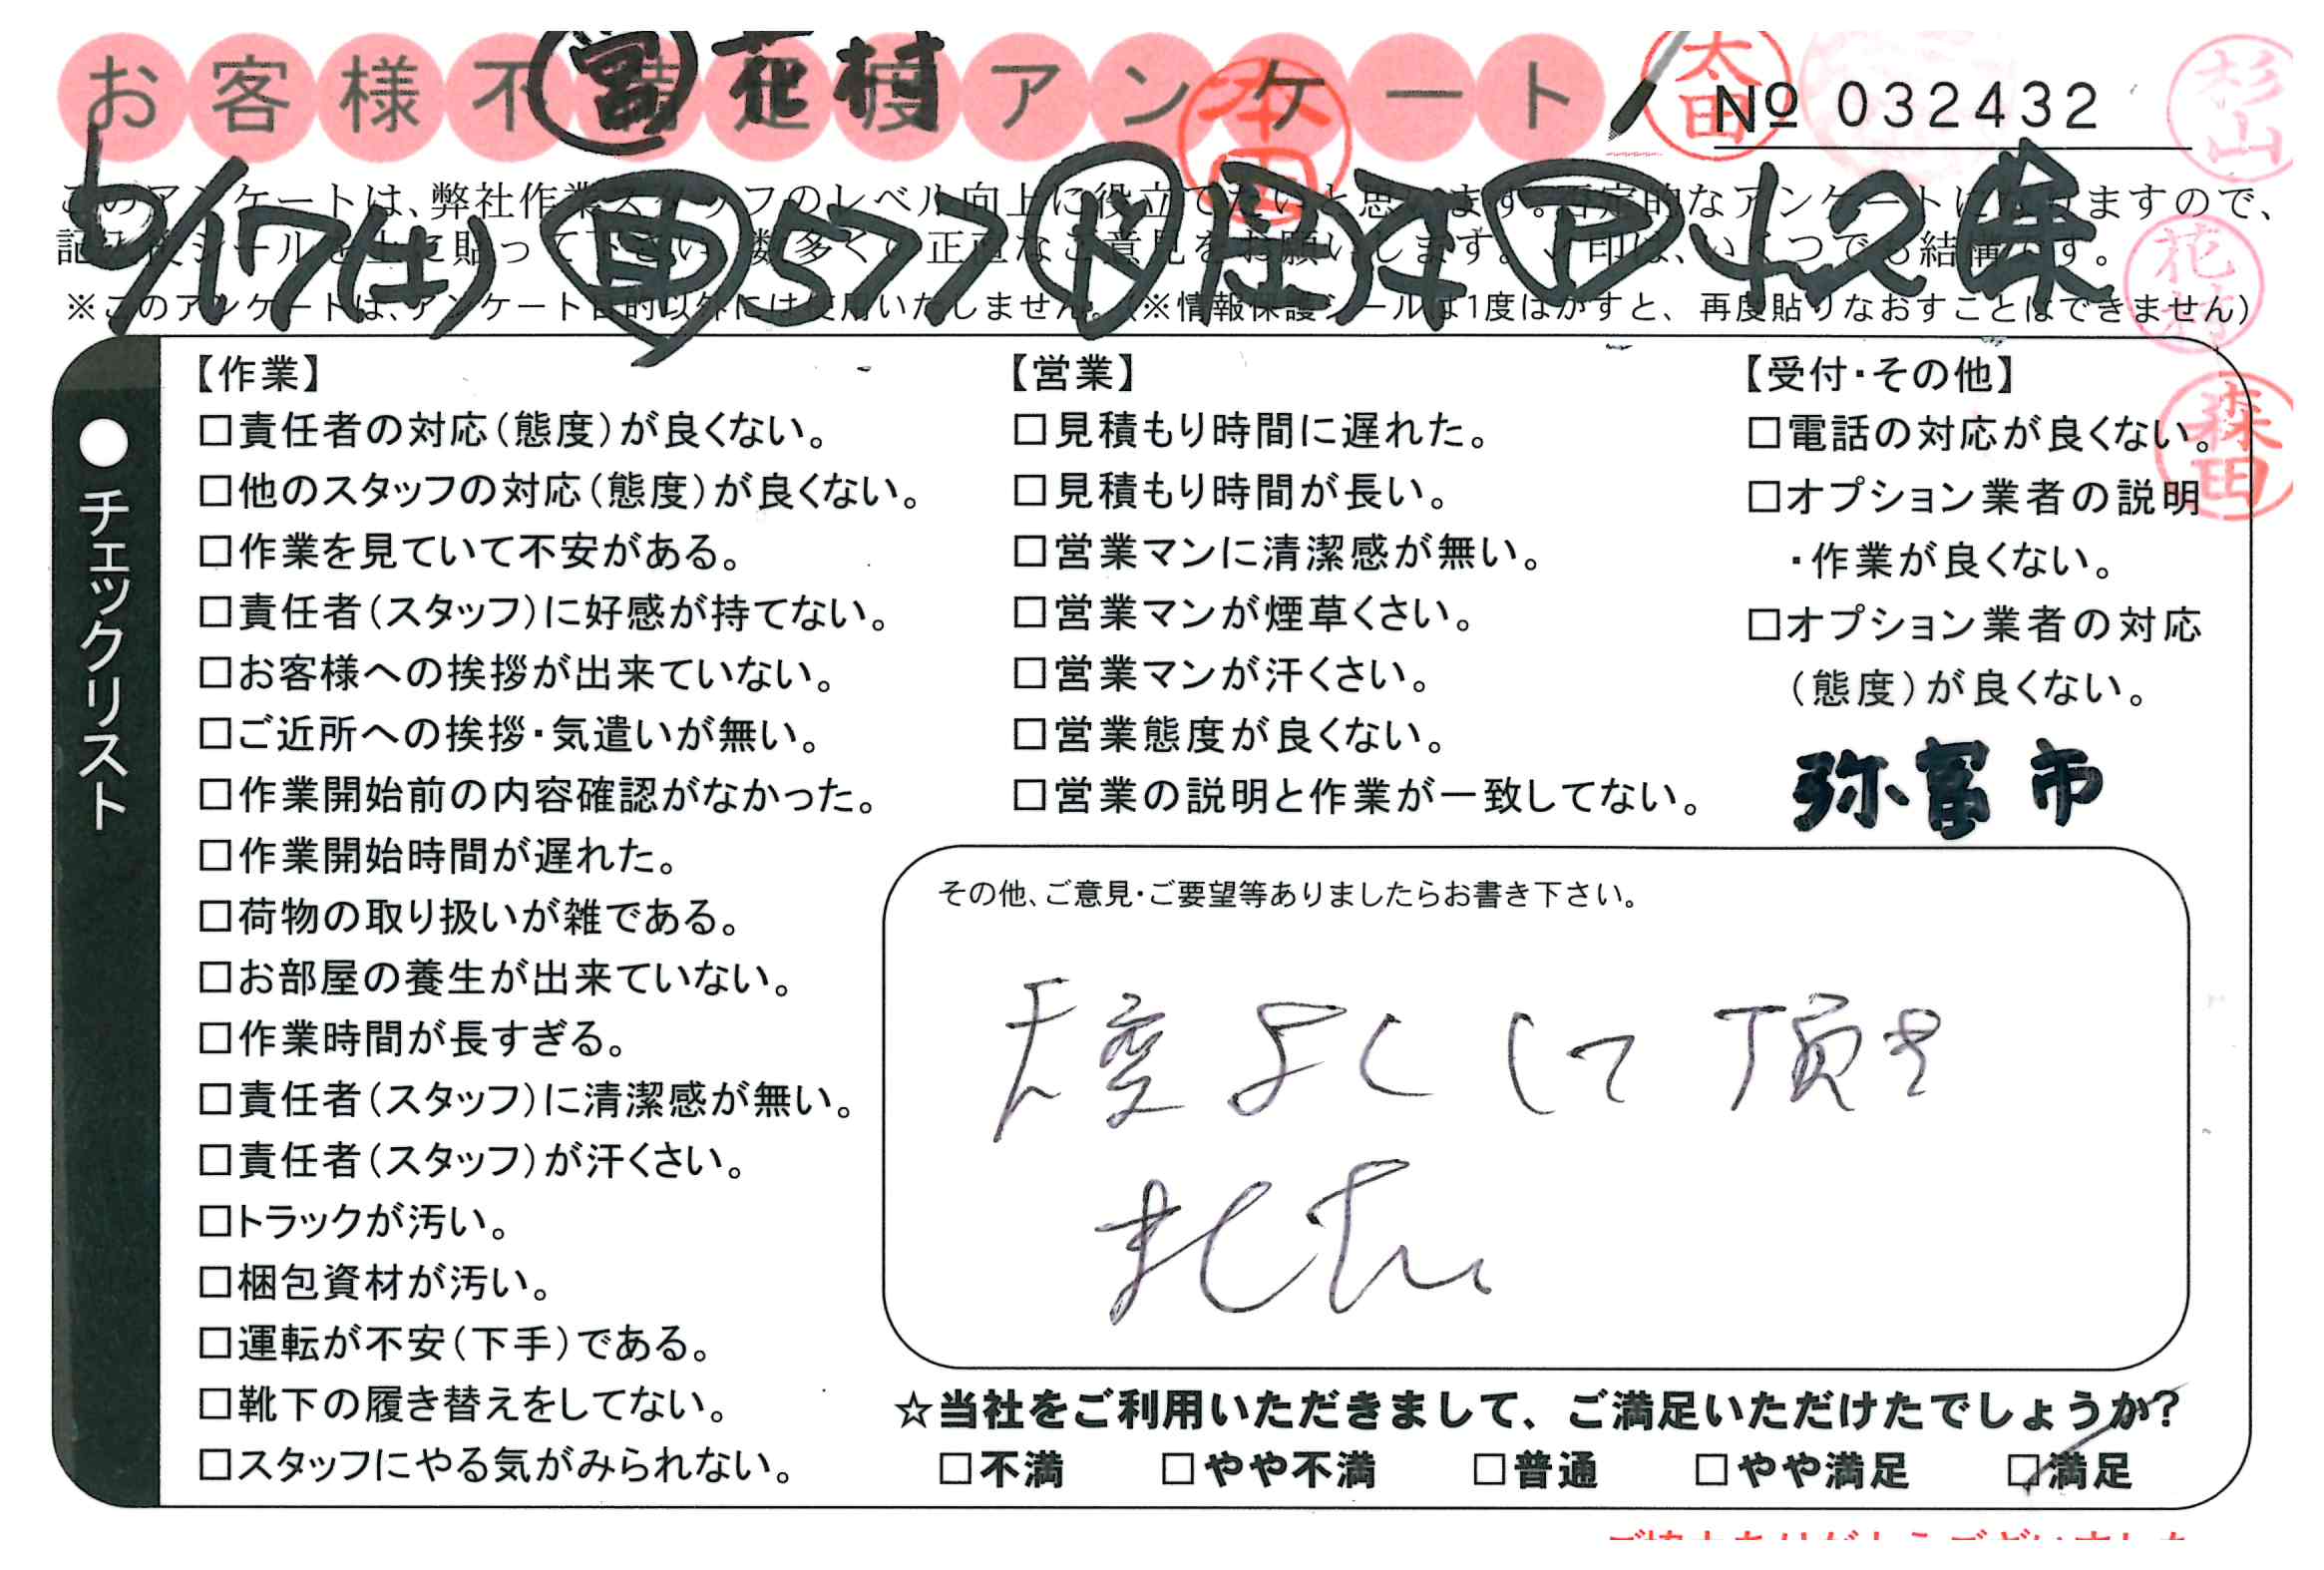 お客様不満足度アンケート
営 花村
本田
太田
No 032432
杉山
6/17(土)
577
このアンケートは、弊社作業スタッフのレベル向上に役立てたいと思います。否定的なアンケートになりますので、
記入後シールを上に貼って下さい。数多くの正直なご意見をお願いします。✓印は、いくつでも結構です。
※このアンケートは、アンケート目的以外には使用いたしません。(※情報保護シールは1度はがすと、再度貼りなおすことはできません)
花村
森田
●チェックリスト
【作業】
□責任者の対応(態度)が良くない。
□他のスタッフの対応(態度)が良くない。
□作業を見ていて不安がある。
□責任者(スタッフ)に好感が持てない。
□お客様への挨拶が出来ていない。
□ご近所への挨拶・気遣いが無い。
□作業開始前の内容確認がなかった。
□作業開始時間が遅れた。
□荷物の取り扱いが雑である。
□お部屋の養生が出来ていない。
□作業時間が長すぎる。
□責任者(スタッフ)に清潔感が無い。
□責任者(スタッフ)が汗くさい。
□トラックが汚い。
□梱包資材が汚い。
□運転が不安(下手)である。
□靴下の履き替えをしてない。
□スタッフにやる気がみられない。
【営業】
□見積もり時間に遅れた。
□見積もり時間が長い。
□営業マンに清潔感が無い。
□営業マンが煙草くさい。
□営業マンが汗くさい。
□営業態度が良くない。
□営業の説明と作業が一致してない。
【受付・その他】
□電話の対応が良くない。
□オプション業者の説明
・作業が良くない。
□オプション業者の対応
(態度)が良くない。
弥富市
その他、ご意見・ご要望等ありましたらお書き下さい。
大変よくして頂き
☆当社をご利用いただきまして、ご満足いただけたでしょうか?
□不満 □やや不満 □普通 □やや満足 ☑満足
ご協力ありがとうございました